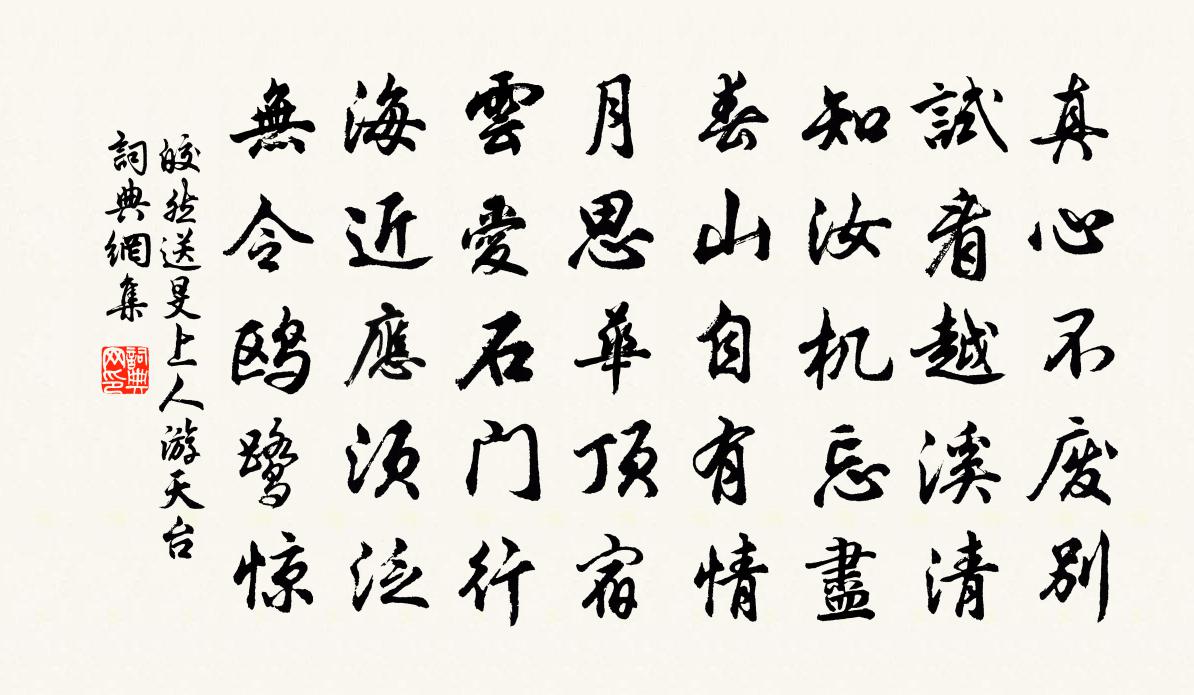 真心不废别
試看越溪清
知汝机忘盡
春山自有情
月思華頂宿
雲愛石门行
海近應须泛
無令鸥鹭惊
皎然送旻上人游天台
詞典網集
詞典網印